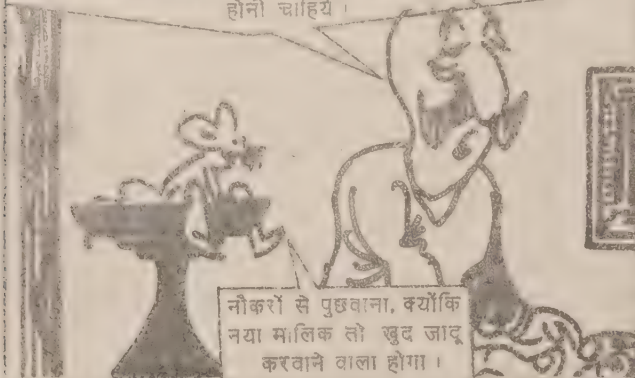 होनी चाहिये ।
नौकरों से पुछवाना, क्योंकि
नया मालिक तो खुद जादू
करवाने वाला होगा ।